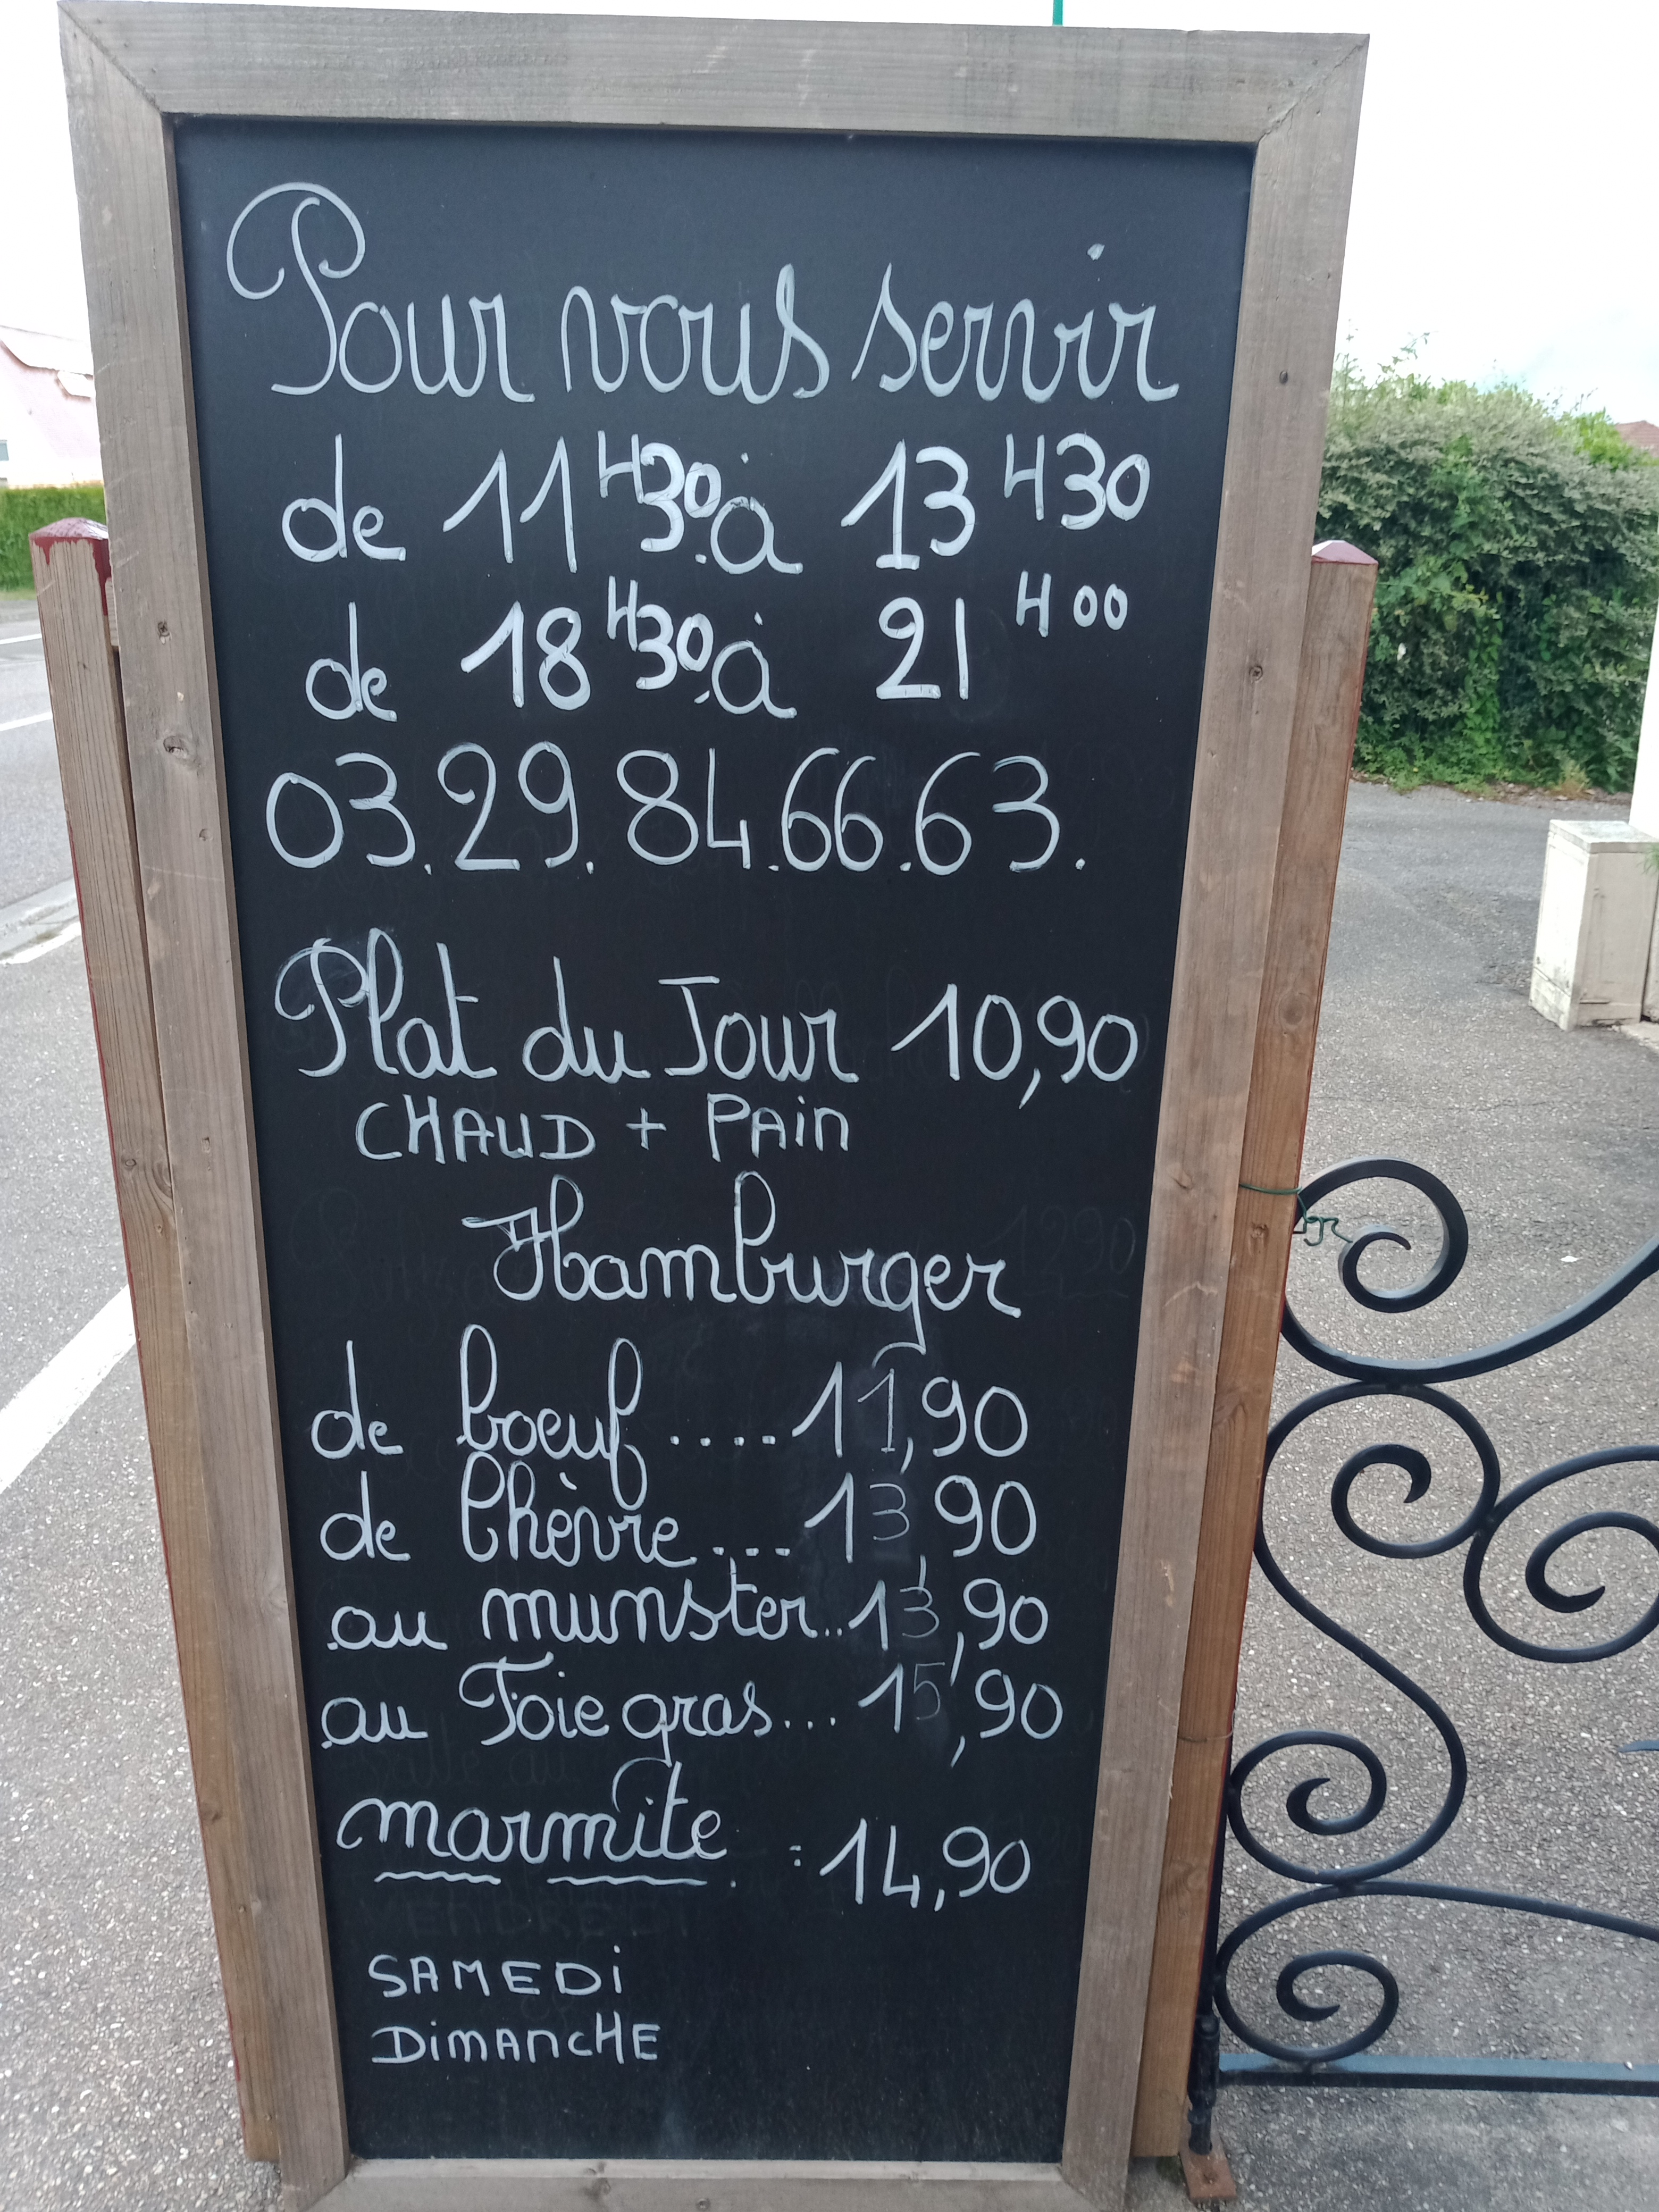 Pour vous servir
de 11H30 à 13H30
de 18H30 à 21H00
03.29.84.66.63.
Plat du Jour 10,90
CHAUD + PAin
Hamburger
de boeuf ....11,90
de Chèvre ... 13,90
au munster..13,90
au Foie gras... 15,90
marmite : 14,90
SAMEDi
DimAncHE